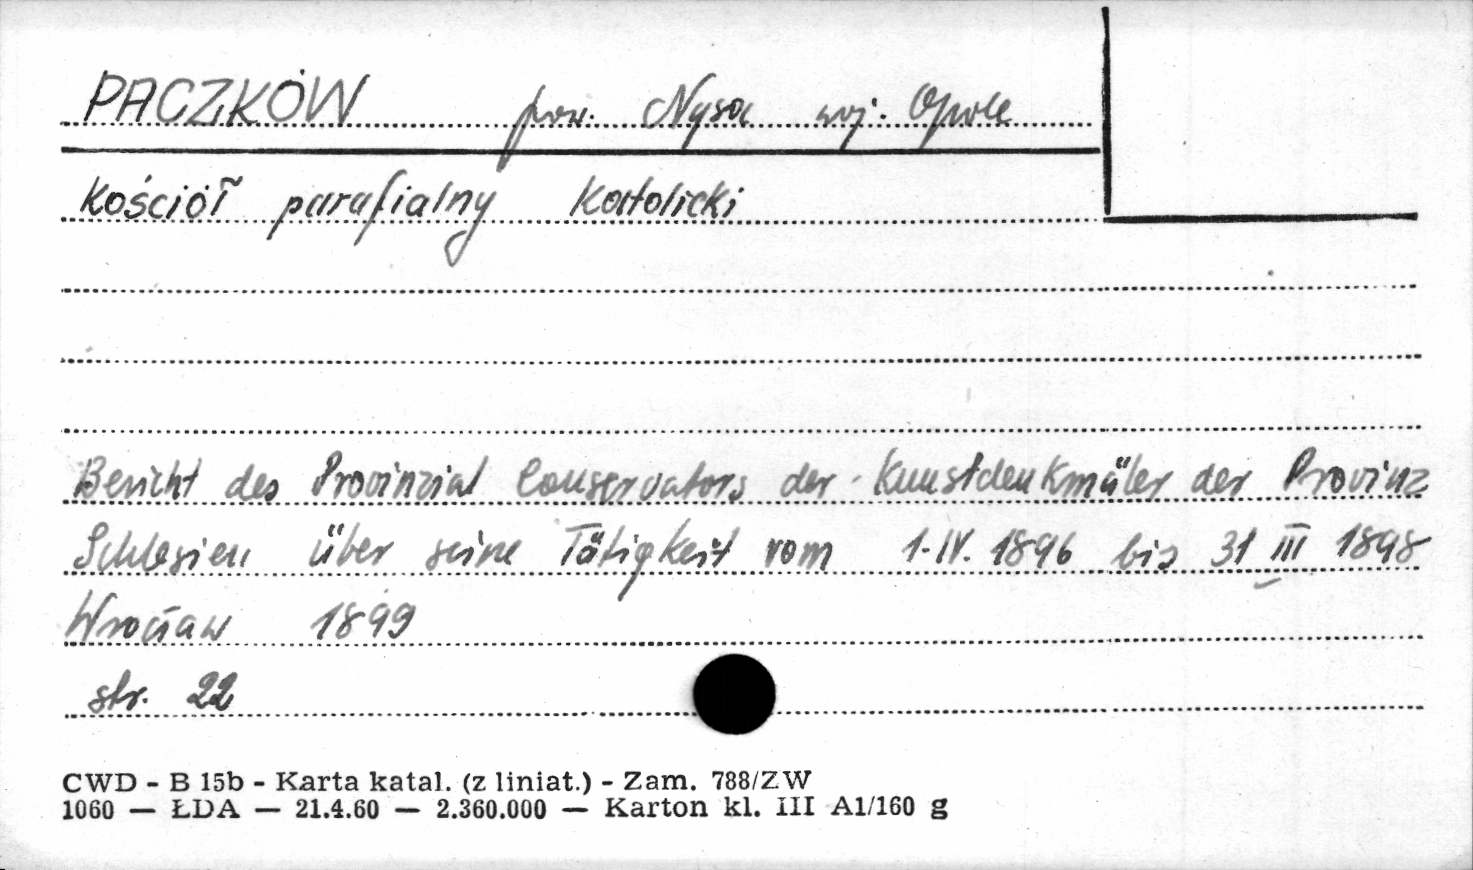 PACZKÓW pow. Nysa woj. Opole
kościół parafialny katolicki
Bericht des Provinzial Conservators der Kunstdenkmäler der Provinz
Schlesien über seine Tätigkeit vom 1.IV. 1896 bis 31 III 1898
Wrocław 1899
str. 22
CWD - B 15b - Karta katal. (z liniat.) - Zam. 788/ZW
1060 — ŁDA — 21.4.60 — 2.360.000 — Karton kl. III A1/160 g